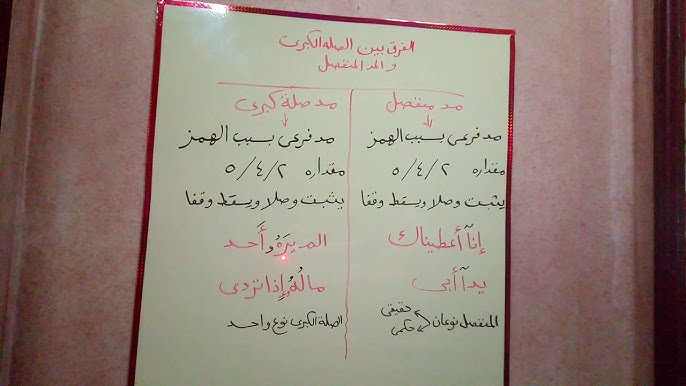 الفرق بين الصله الكبرى
والمد المنفصل
مد منفصل
مد فرعى بسبب الهمز
مقداره ٥/٤/٢
يثبت وصلا ويسقط وقفا
إنآ أعطيناك
يدآ أبى
المنفصل نوعان حقيقى حكمى
مد صلة كبرى
مد فرعى بسبب الهمز
مقداره ٥/٤/٢
يثبت وصلا ويسقط وقفا
ألم يرَهُ و أَحد
مالُهُ و إِذا تردى
الصلة الكبرى نوع واحد